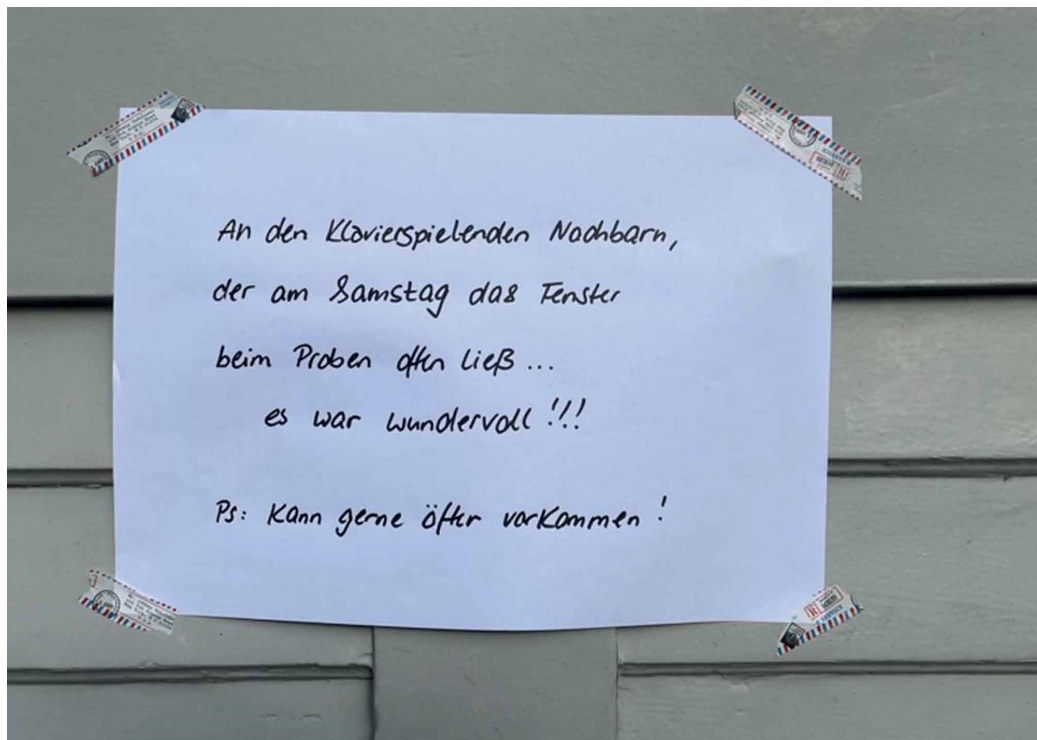 An den Klavierspielenden Nachbarn,
der am Samstag das Fenster
beim Proben offen ließ...
es war wundervoll!!!
Ps: Kann gerne öfter vorkommen!